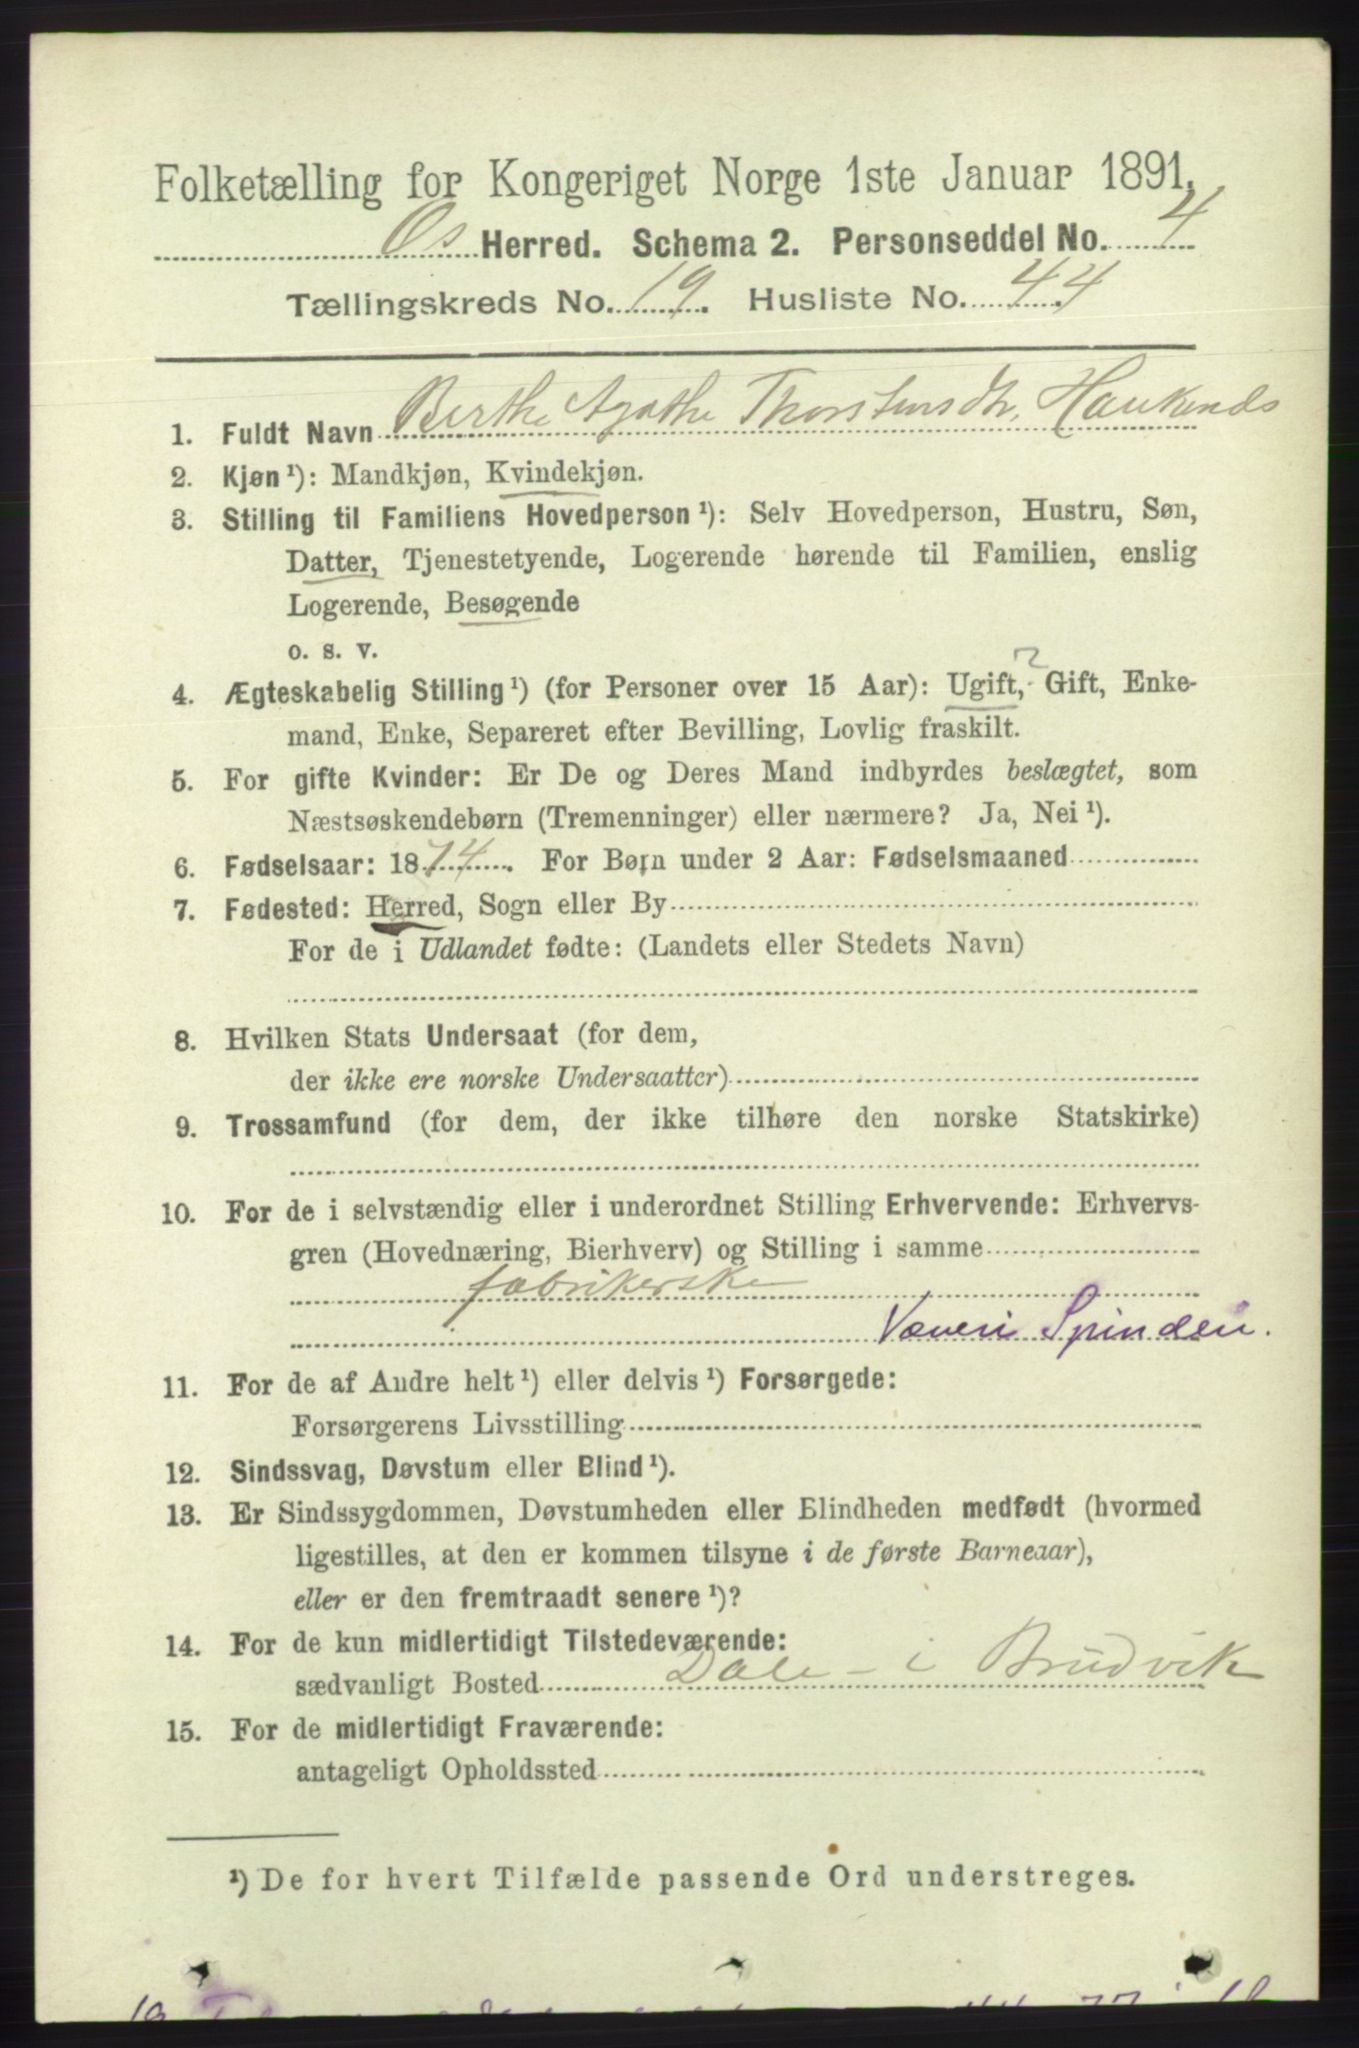 Folketælling for Kongeriget Norge 1ste Januar 1891.
Os Herred. Schema 2. Personseddel No. 4
Tællingskreds No. 19. Husliste No. 44
1. Fuldt Navn Berthe Agathe Thorstensdtr. Haukends
2. Kjøn¹): Mandkjøn, Kvindekjøn.
3. Stilling til Familiens Hovedperson¹): Selv Hovedperson, Hustru, Søn,
Datter, Tjenestetyende, Logerende hørende til Familien, enslig
Logerende, Besøgende
o. s. v.
4. Ægteskabelig Stilling¹) (for Personer over 15 Aar): Ugift, Gift, Enke-
mand, Enke, Separeret efter Bevilling, Lovlig fraskilt.
5. For gifte Kvinder: Er De og Deres Mand indbyrdes beslægtet, som
Næstsøskendebørn (Tremenninger) eller nærmere? Ja, Nei¹).
6. Fødselsaar: 1874. For Børn under 2 Aar: Fødselsmaaned
7. Fødested: Herred, Sogn eller By
For de i Udlandet fødte: (Landets eller Stedets Navn)
8. Hvilken Stats Undersaat (for dem,
der ikke ere norske Undersaatter)
9. Trossamfund (for dem, der ikke tilhøre den norske Statskirke)
10. For de i selvstændig eller i underordnet Stilling Erhvervende: Erhvervs-
gren (Hovednæring, Bierhverv) og Stilling i samme
fabrikerske
Væveri Spinderi.
11. For de af Andre helt¹) eller delvis¹) Forsørgede:
Forsørgerens Livsstilling
12. Sindssvag, Døvstum eller Blind¹).
13. Er Sindssygdommen, Døvstumheden eller Blindheden medfødt (hvormed
ligestilles, at den er kommen tilsyne i de første Barneaar),
eller er den fremtraadt senere¹)?
14. For de kun midlertidigt Tilstedeværende:
sædvanligt Bosted Dale - i Brudvik
15. For de midlertidigt Fraværende:
antageligt Opholdssted
¹) De for hvert Tilfælde passende Ord understreges.